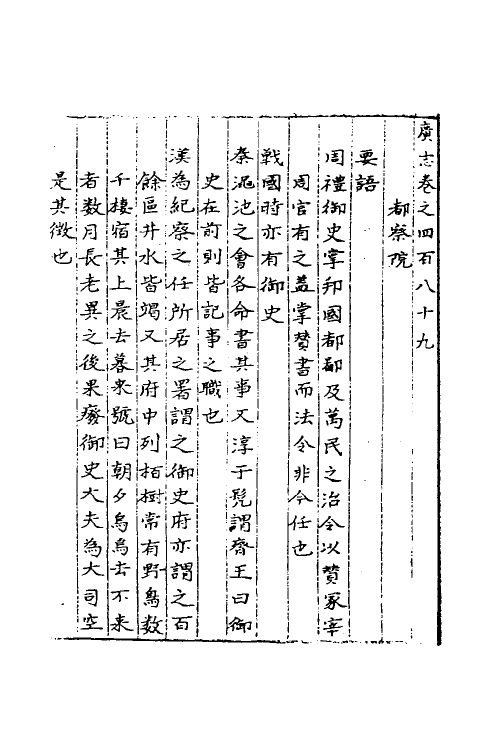 廣志卷之四百八十九
都察院
要語
周禮御史掌邦國都鄙及萬民之治令以贊冢宰
周官有之蓋掌贊書而法令非今任也
戰國時亦有御史
秦澠池之會各命書其事又淳于髡謂齊王曰御
史在前則皆記事之職也
漢為紀察之任所居之署謂之御史府亦謂之百
餘區井水皆竭又其府中列栢樹常有野鳥數
千棲宿其上晨去暮来號曰朝夕烏烏去不来
者数月長老異之後果廢御史大夫為大司空
是其徴也